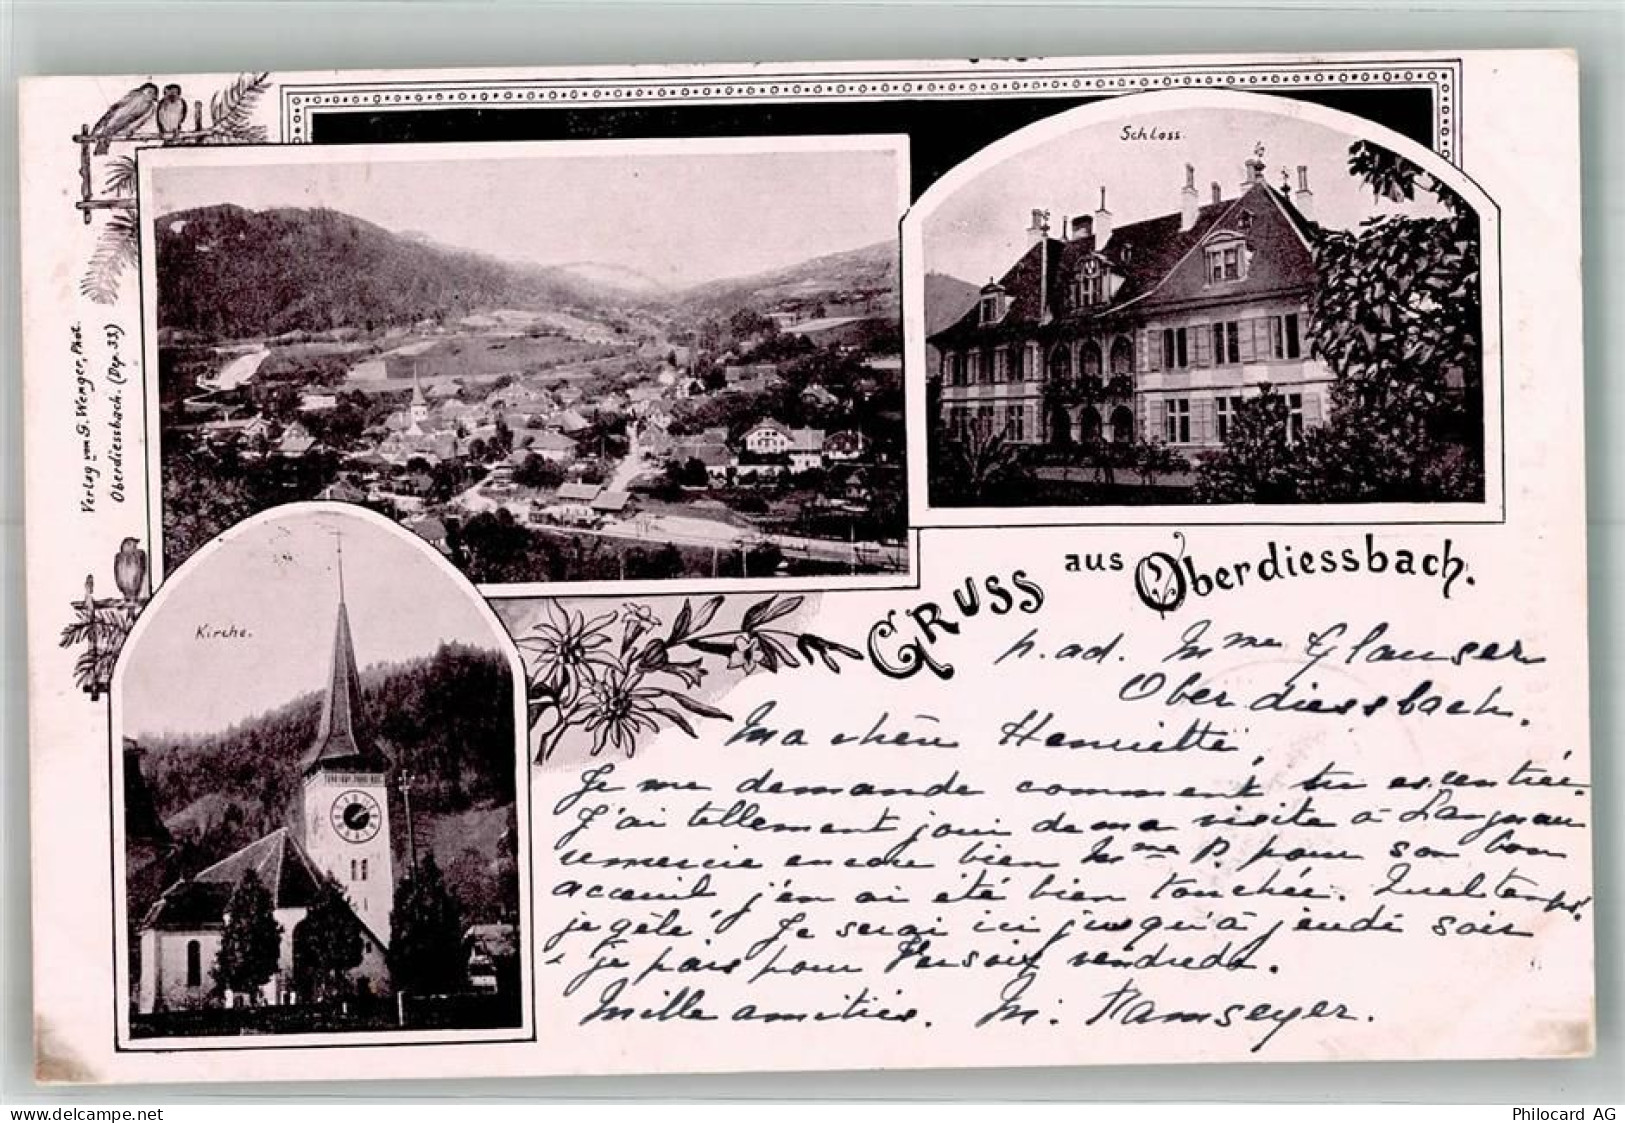 Schloss.
Verlag von G. Wenger, Phot.
Oberdiessbach. (Dep. 33)
Kirche.
GRUSS aus Oberdiessbach.
p. ad. Mme Glauser
Oberdiessbach.
Ma chère Henriette,
Je me demande comment tu es rentrée.
J'ai tellement joui de ma visite à Langnau
remercie encore bien Mme P. pour son bon
accueil j'en ai été bien touchée. Quel temps!
je gèle! Je serai ici jusqu'à jeudi soir
je pars pour vendredi.
Mille amitiés. M. Ramseyer.
www.delcampe.net
Philocard AG